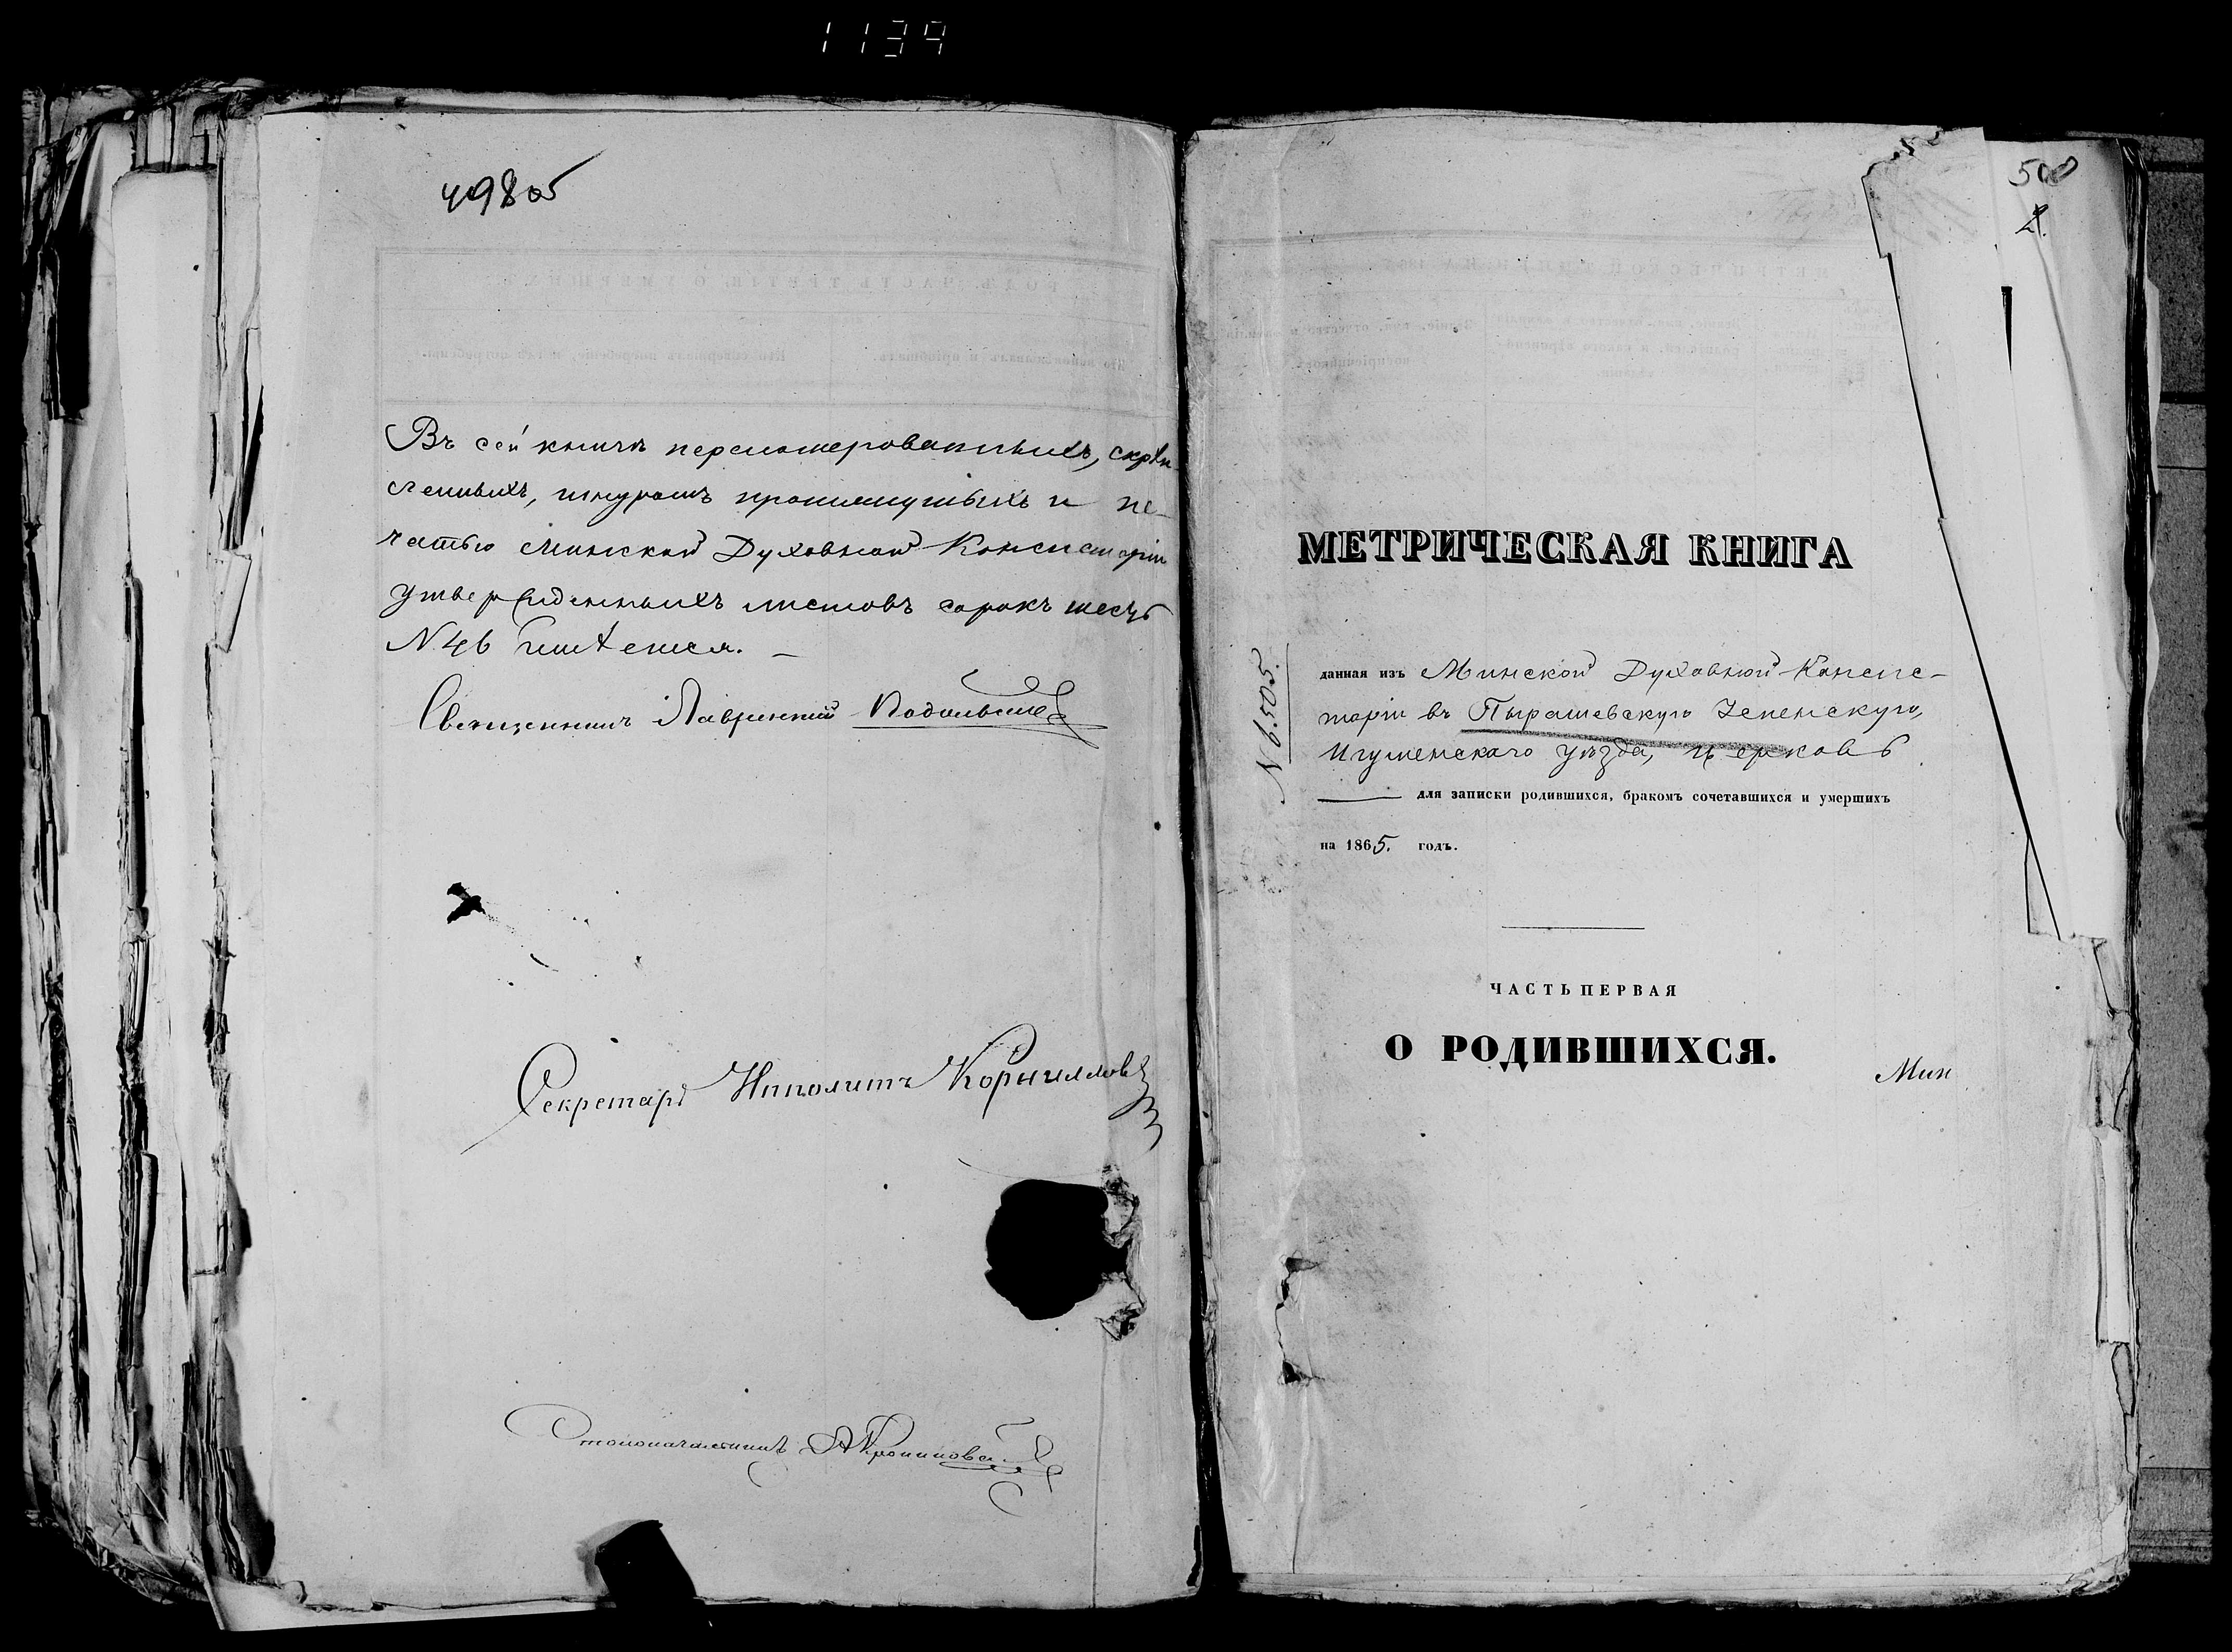 1139
498об
Въ сей книгѣ перенумерованныхъ, скрѣп-
ленныхъ, шнуромъ прошнутыхъ и пе-
чатью Минской Духовной Консисторіи
утвержденныхъ листовъ сорокъ шесть
N 46 числится.
Священникъ Лаврентій
Секретарь Ипполитъ Корниллов
Столоначальникъ
500
2.
МЕТРИЧЕСКАЯ КНИГА
N 6.505.
данная изъ Минской Духовной Консис-
торіи въ Пырашевскую Успенскую,
Игуменскаго уѣзда, церковь
для записки родившихся, бракомъ сочетавшихся и умершихъ
на 1865. годъ.
ЧАСТЬ ПЕРВАЯ
О РОДИВШИХСЯ.
Мин